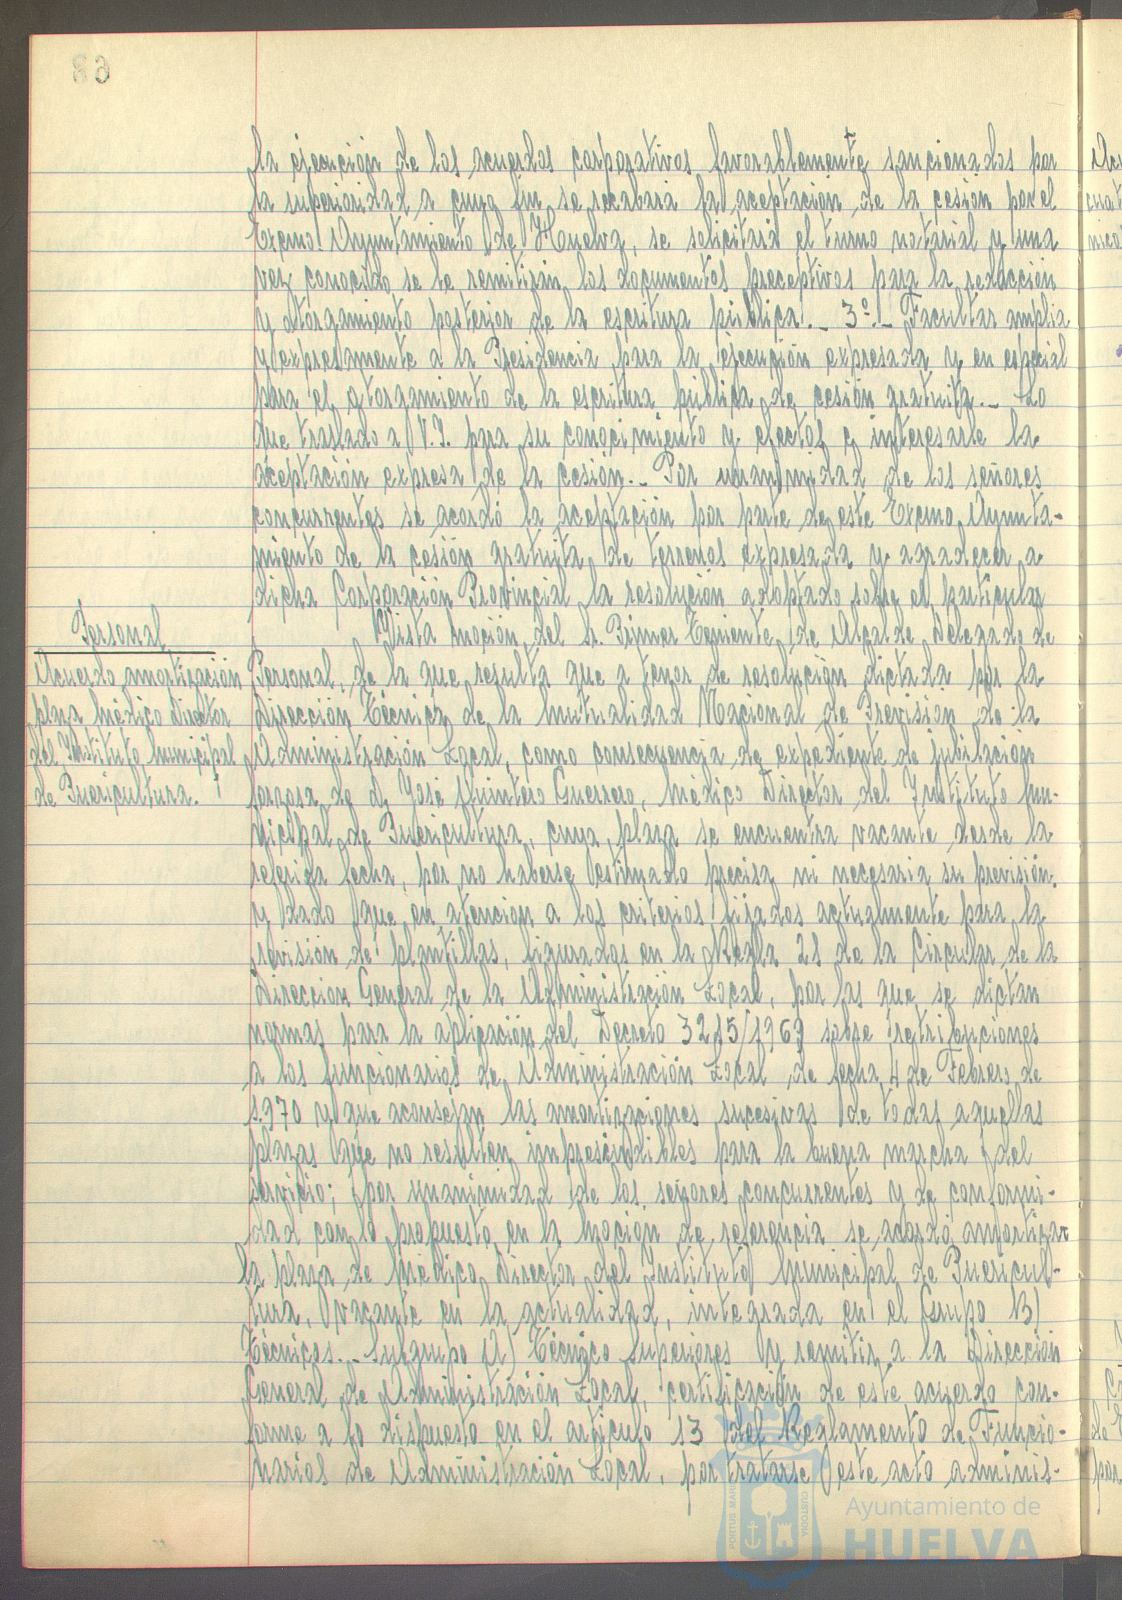 la ejecución de los acuerdos corporativos favorablemente sancionados por
la superioridad a cuyo fin se recabará la aceptación de la cesión por el
Excmo. Ayuntamiento de Huelva, se solicitará el turno notarial y una
vez conocido se le remitirán los documentos preceptivos para la redacción
y otorgamiento posterior de la escritura pública.- 3º.- Facultar amplia
y expresamente a la Presidencia para la ejecución expresada y en especial
para el otorgamiento de la escritura pública de cesión gratuita.- Lo
que traslado a V.I. para su conocimiento y efectos e interesarle la
aceptación expresa de la cesión.- Por unanimidad de los señores
concurrentes se acordó la aceptación por parte de este Excmo. Ayunta-
miento de la cesión gratuita de terrenos expresada y agradecer a
dicha Corporación Provincial la resolución adoptado sobre el particular
Personal
Acuerdo amortización
plaza Médico Director
del Instituto Municipal
de Puericultura.
Vista moción del Sr. Primer Teniente de Alcalde Delegado de
Personal, de la que resulta que a tenor de resolución dictada por la
Dirección Técnica de la Mutualidad Nacional de Previsión de la
Administración Local, como consecuencia de expediente de jubilación
forzosa de D. José Quintero Guerrero, Médico Director del Instituto Mu-
nicipal de Puericultura, cuya plaza se encuentra vacante desde la
referida fecha, por no haberse estimado precisa ni necesaria su previsión.
y dado que en atención a los criterios fijados actualmente para la
revisión de plantillas, figurados en la Regla 28 de la Circular de la
Dirección General de la Administración Local, por las que se dictan
normas para la aplicación del Decreto 3215/1969 sobre retribuciones
a los funcionarios de Administración Local de fecha 4 de Febrero de
1.970 y que aconsejan las amortizaciones sucesivas de todas aquellas
plazas que no resulten imprescindibles para la buena marcha del
servicio; por unanimidad de los señores concurrentes y de conformi-
dad con lo propuesto en la moción de referencia se acordó amortizar
la plaza de Médico Director del Instituto Municipal de Puericul-
tura, vacante en la actualidad, integrada en el Grupo B)
Técnicos.- Subgrupo A) Técnico Superiores y remitir a la Dirección
General de Administración Local, certificación de este acuerdo con-
forme a lo dispuesto en el artículo 13 del Reglamento de Funcio-
narios de Administración Local, por tratarse este acto adminis-
PORTUS MARIS
CUSTODIA
Ayuntamiento de
HUELVA